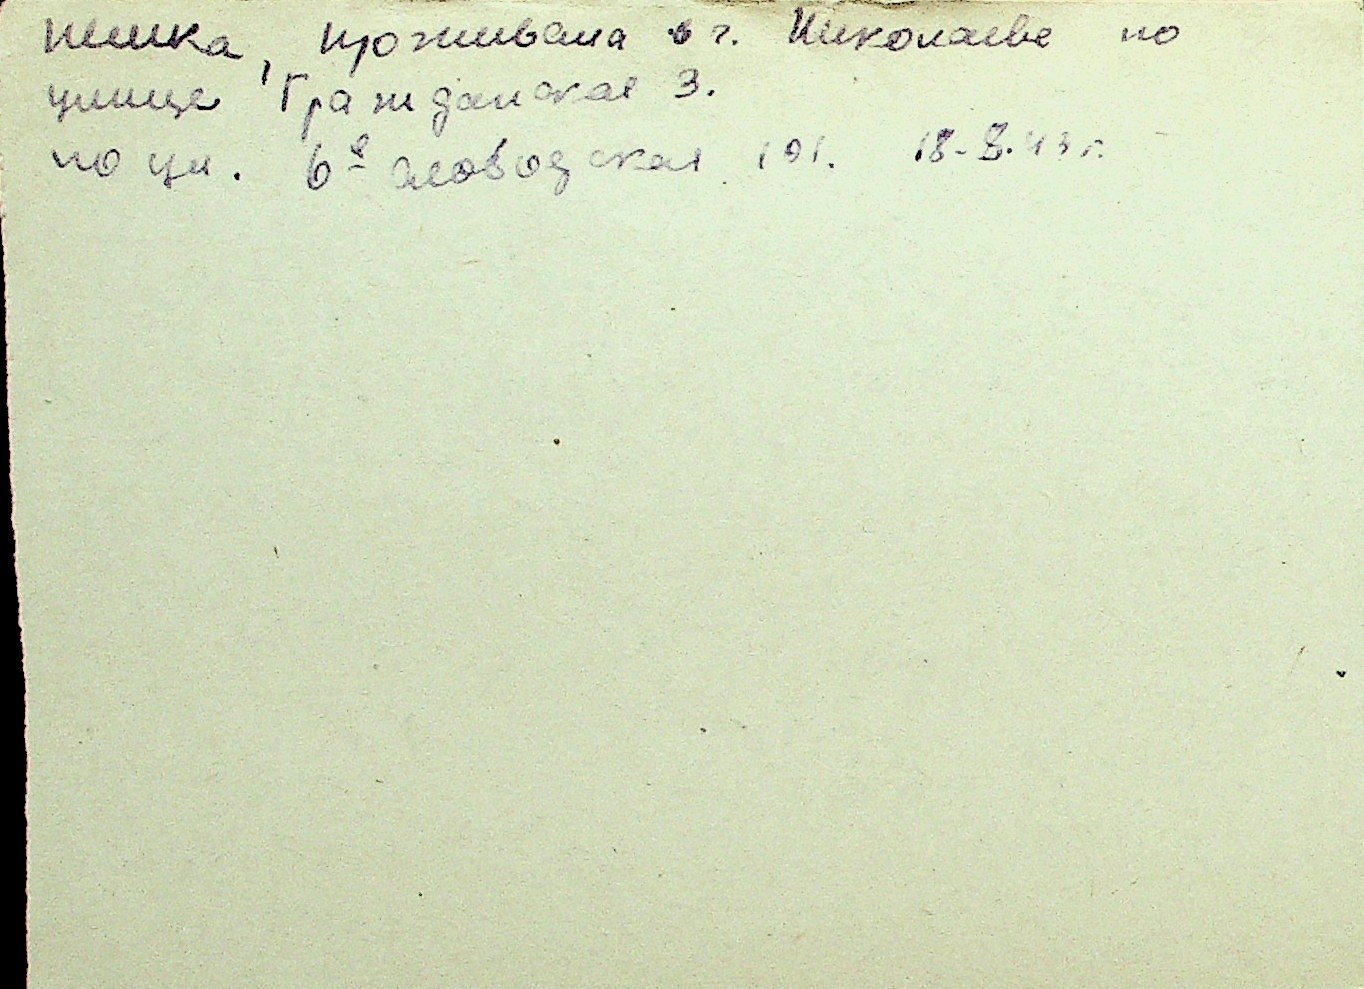 немка, проживала в г. Николаеве по
улице Гражданская 3.
по ул. 6ª слободская 101. 18-8.43 г.